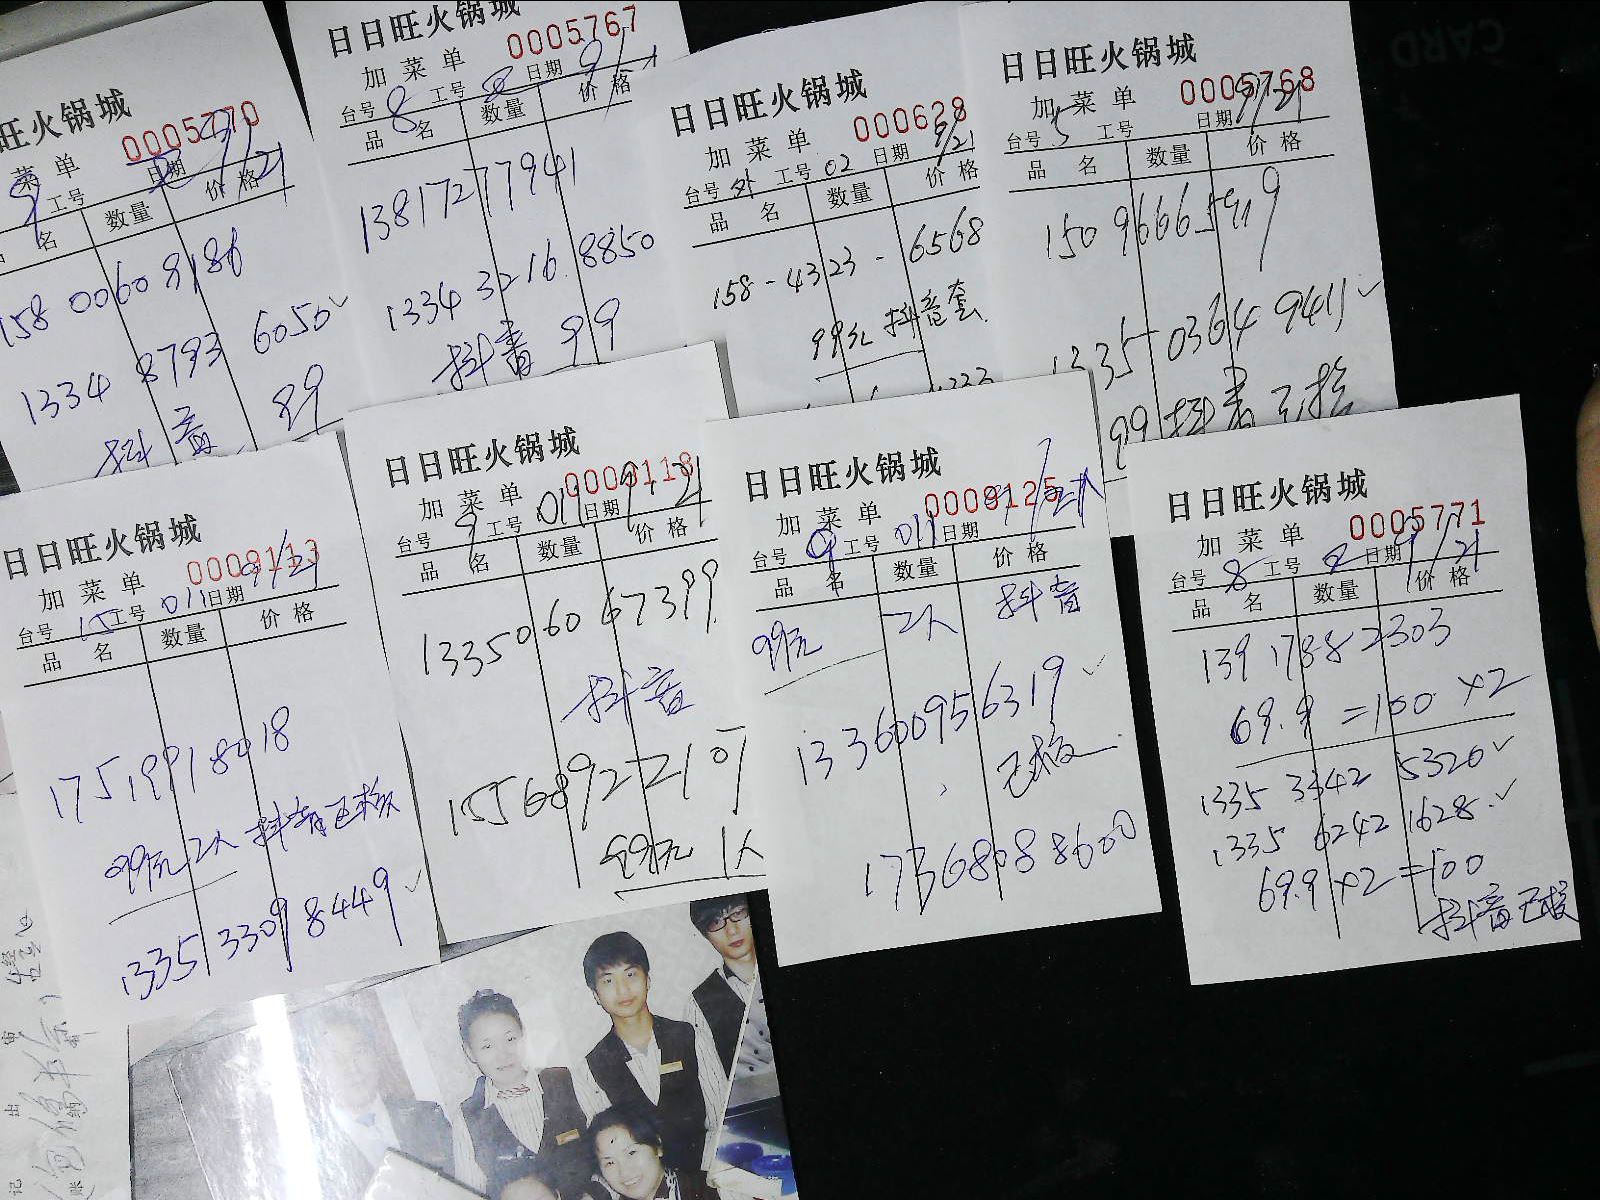 旺火锅城
0005770
菜单
9 工号 2 日期 9/21
名 数量 价格
158 0060 8186
1334 8793 6050✓
抖音 89
日日旺火锅城
0005767
加菜单
台号 8 工号 2 日期 9/
品名 数量 价格
13817277941
1334 3216 8850
抖音 99
日日旺火锅城
000628
加菜单
台号 外 工号 02 日期 9/21
品名 数量 价格
158-4323-6568
99元 抖音套
日日旺火锅城
0005768
加菜单
台号 5 工号 日期 9/21
品名 数量 价格
1335 0364 9411✓
99 抖音已核
日日旺火锅城
0008113
加菜单
台号 15 工号 011 日期 9/21
品名 数量 价格
99元 2人 抖音已核
1335 3309 8449✓
日日旺火锅城
0008118
加菜单
台号 9 工号 011 日期 9.21
品名 数量 价格
133506067399
抖音
15568922107
99元 1人
日日旺火锅城
0008125
加菜单
台号 9 工号 011 日期 9/21
品名 数量 价格
99元 2人 抖音
133600956319✓
已核
17368088600
日日旺火锅城
0005771
加菜单
台号 8 工号 2 日期 9/21
品名 数量 价格
139 1788 2303
69.9=100 ×2
1335 3342 5320✓
1335 6242 1628✓
69.9×2=100
抖音已核